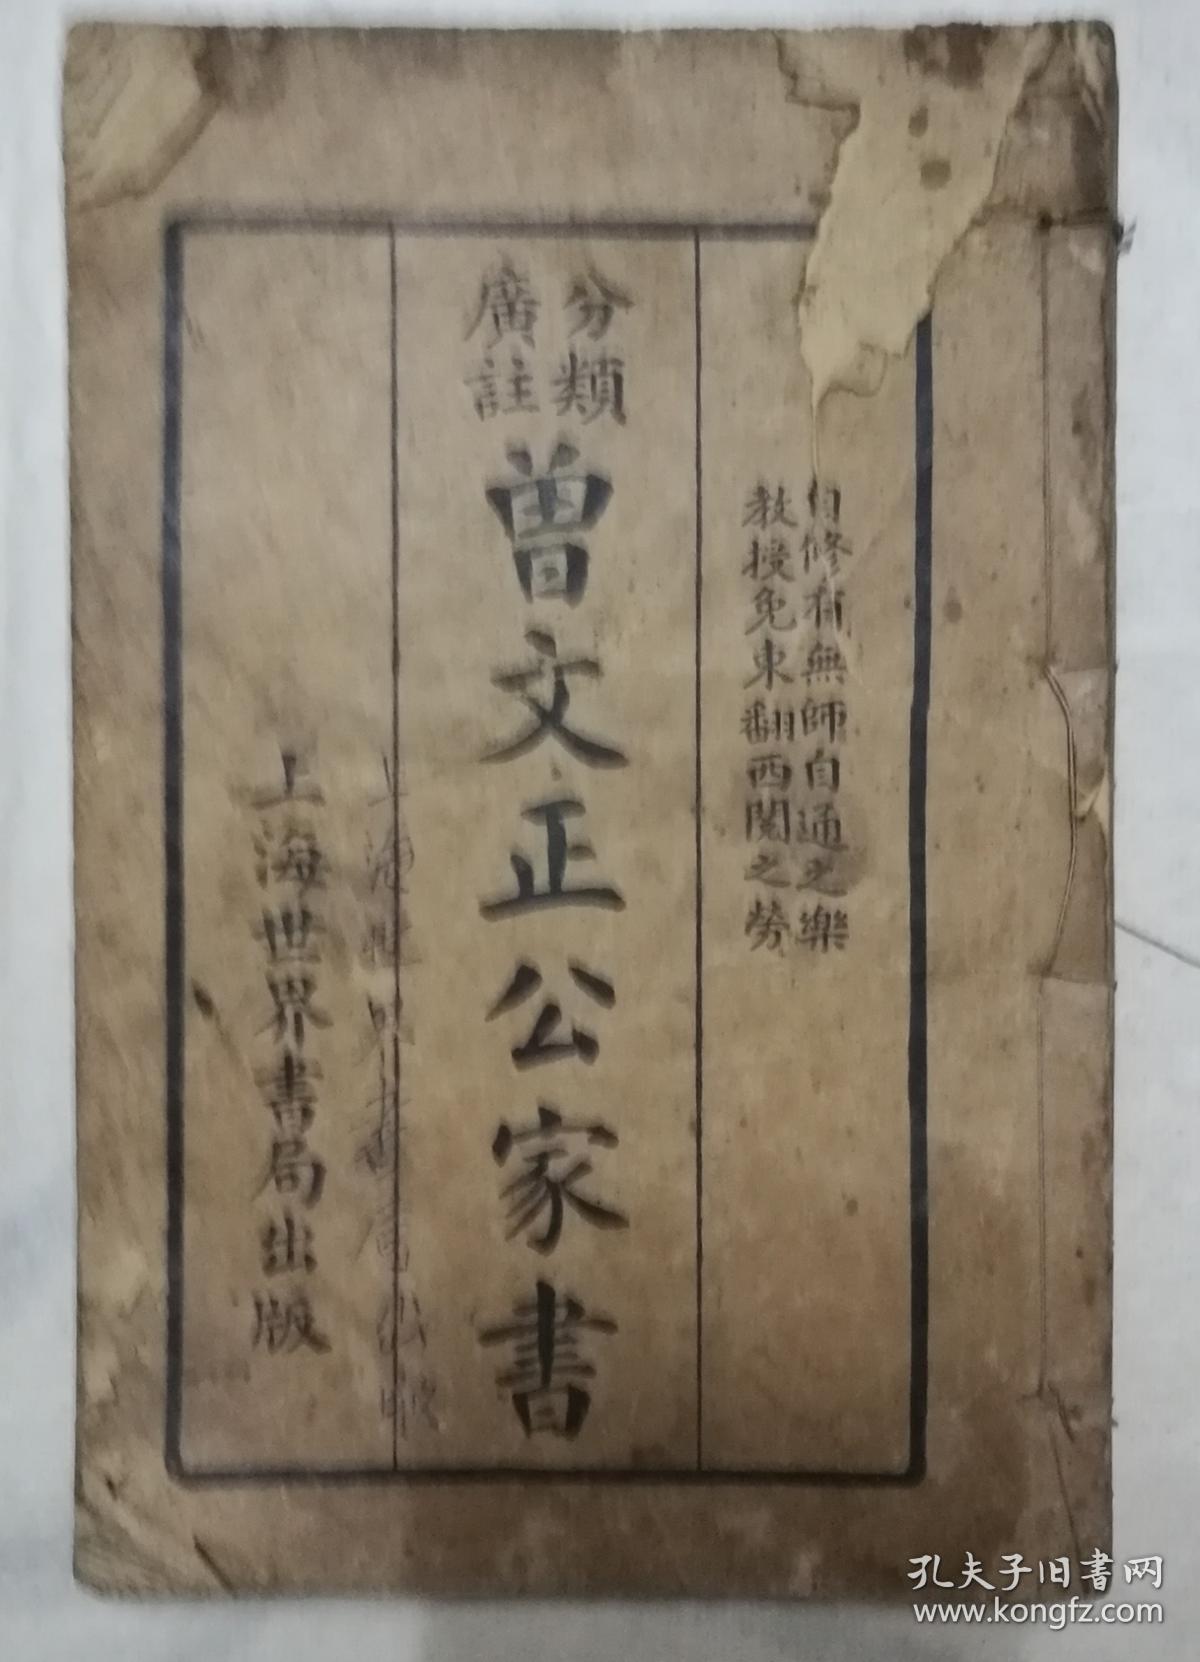 自修有無師自通之樂
教授免東翻西閱之勞
分類
廣註
曾文正公家書
上海世界書局出版
孔夫子旧书网
www.kongfz.com